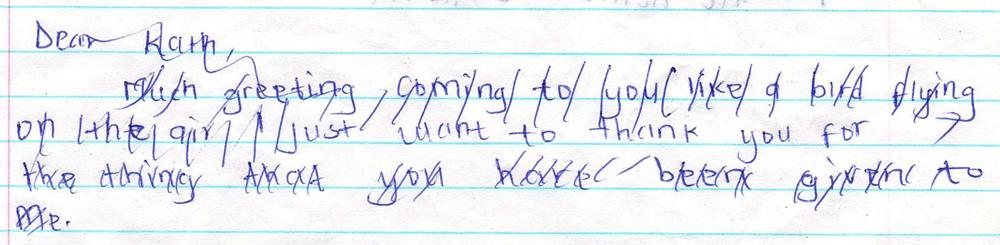 Dear Karn,
Much greeting, coming to you like a bird flying
on the air, I just want to thank you for
the thing that you have been given to
me.